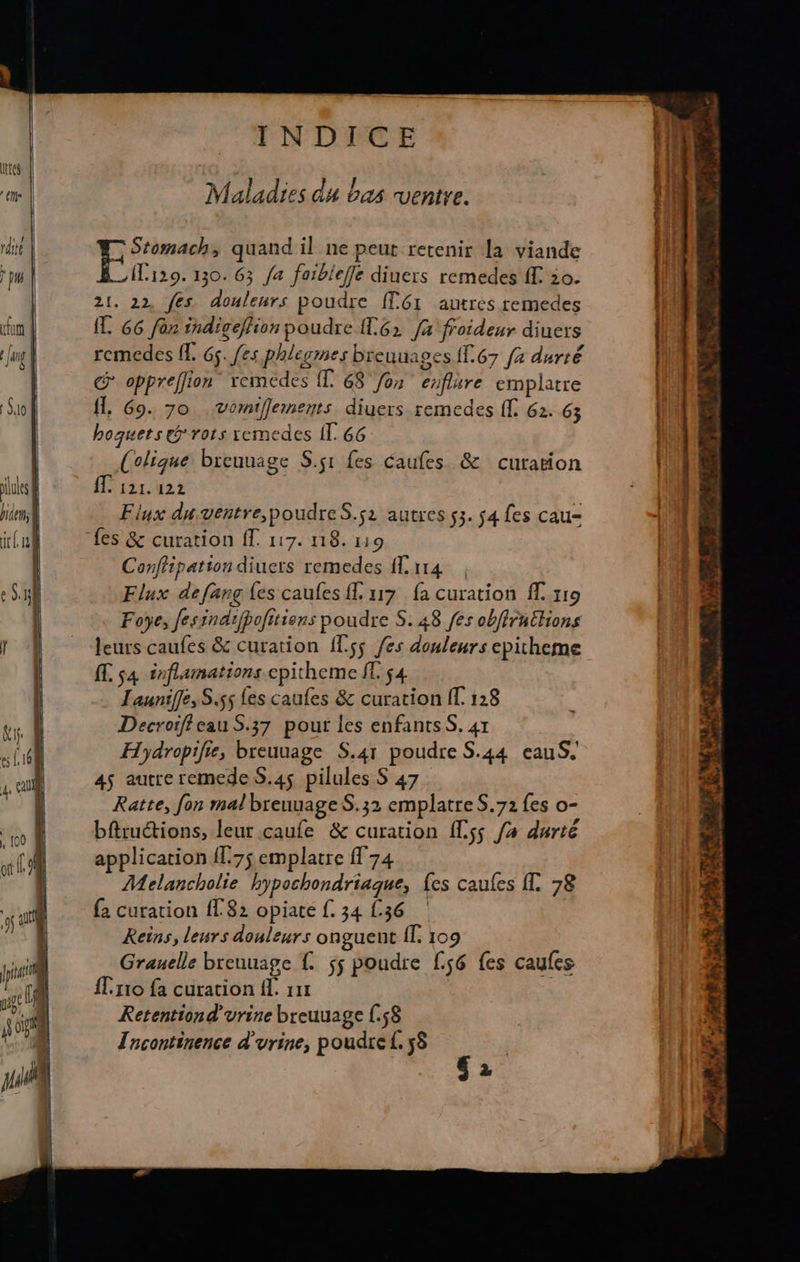 INDICE
Maladies du bas ventre.
EStomach, quand il ne peut retenir la viande
ſſ.129. 130. 63 ſa foibleſſe diuers remedes ſſ. 20.
21. 22. ſes douleurs poudre ſſ.61 autres remedes
ſſ. 66 ſon indigeſtion poudre ſſ.62 ſa froideur diuers
remedes ſſ. 65. ſes phlegmes breuuages ſſ.67 ſa durté
& oppreſſion remedes ſſ. 68 ſon enflure emplatre
ſſ. 69. 70 vomiſſements diuers remedes ſſ. 62. 63
hoquets & rots remedes ſſ. 66
Colique breuuage S.51 ſes cauſes & curation
ſſ. 121. 122
Flux du ventre, poudre S.52 autres 53. 54 ſes cau-
ſes & curation ſſ. 117. 118. 119
Conſtipation diuers remedes ſſ. 114
Flux de ſang ſes cauſes ſſ. 117 ſa curation ſſ. 119
Foye, ſes indiſpoſitions poudre S. 48 ſes obſtructions
leurs cauſes & curation ſſ.55 ſes douleurs epitheme
ſſ. 54 inflamations epitheme ſſ. 54
Iauniſſe, S.55 ſes cauſes & curation ſſ. 128
Decroiſt eau S.37 pour les enfants S. 41
Hydropiſie, breuuage S.41 poudre S.44 eau S.
45 autre remede S.45 pilules S 47
Ratte, ſon mal breuuage S.32 emplatre S.72 ſes o-
bſtructions, leur cauſe & curation ſſ.55 ſa durté
application ſſ.75 emplatre ſſ 74
Melancholie hypochondriaque, ſes cauſes ſſ. 78
ſa curation ſſ 82 opiate ſ. 34 ſ.36
Reins, leurs douleurs onguent ſſ. 109
Grauelle breuuage ſ. 55 poudre ſ.56 ſes cauſes
ſſ.110 ſa curation ſſ. 111
Retention d'vrine breuuage ſ.58
Incontinence d'vrine, poudre ſ. 58
§ 2